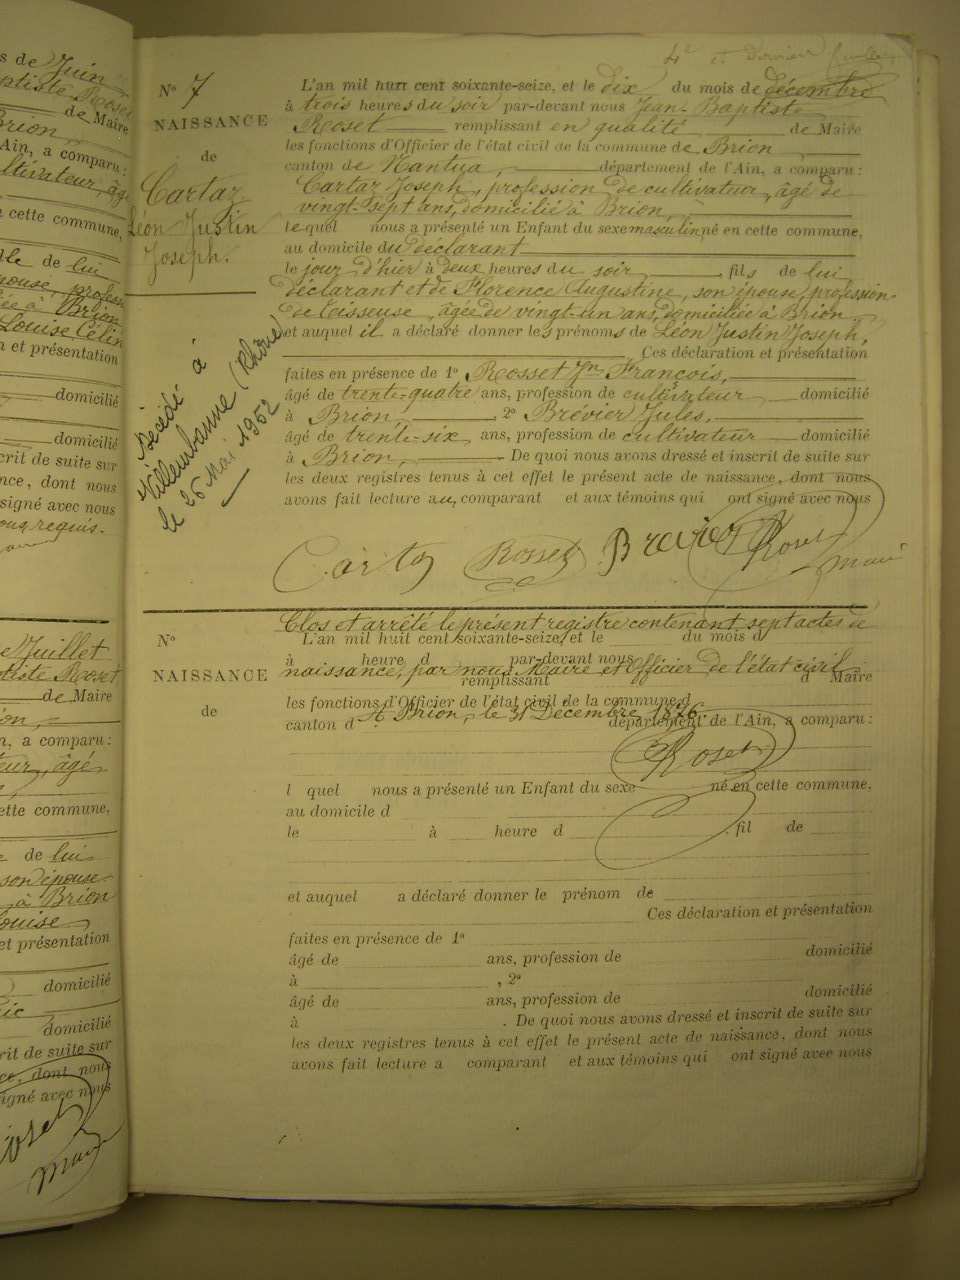 4e et dernier
N° 7
NAISSANCE
de
Cartaz
Léon Justin
Joseph.
Décédé à
Villeurbanne (Rhône)
le 25 Mai 1952
L'an mil huit cent soixante-seize, et le dix du mois de décembre
à trois heures du soir par-devant nous Jean-Baptiste
Roset remplissant en qualité de Maire
les fonctions d'Officier de l'état civil de la commune de Brion,
canton de Nantua, département de l'Ain, a comparu:
Cartaz Joseph, profession de cultivateur, âgé de
vingt-sept ans, domicilié à Brion,
lequel nous a présenté un Enfant du sexe masculin, né en cette commune,
au domicile du déclarant
le jour d'hier à deux heures du soir, fils de lui
déclarant et de Florence Augustine, son épouse, profession
de tisseuse, âgée de vingt-un ans, domiciliée à Brion
et auquel il a déclaré donner les prénoms de Léon Justin Joseph,
Ces déclaration et présentation
faites en présence de 1° Rosset Jn François,
âgé de trente-quatre ans, profession de cultivateur domicilié
à Brion, 2° Brévier Jules,
âgé de trente-six ans, profession de cultivateur domicilié
à Brion, De quoi nous avons dressé et inscrit de suite sur
les deux registres tenus à cet effet le présent acte de naissance, dont nous
avons fait lecture au, comparant et aux témoins qui ont signé avec nous
Cartaz Rosset Brevier Roset
maire
N°
NAISSANCE
de
Clos et arrêté le présent registre contenant sept actes de
L'an mil huit cent soixante-seize, et le du mois d
à heure d par-devant nous
naissance, par nous Maire et Officier de l'état civil
remplissant d Maire
les fonctions d'Officier de l'état civil de la commune d
A Brion, le 31 Décembre 1876.
canton d département de l'Ain, a comparu:
Roset
l quel nous a présenté un Enfant du sexe né en cette commune,
au domicile d
le à heure d , fil de
et auquel a déclaré donner le prénom de
Ces déclaration et présentation
faites en présence de 1°
âgé de ans, profession de domicilié
à , 2°
âgé de ans, profession de domicilié
à . De quoi nous avons dressé et inscrit de suite sur
les deux registres tenus à cet effet le présent acte de naissance, dont nous
avons fait lecture a comparant et aux témoins qui ont signé avec nous